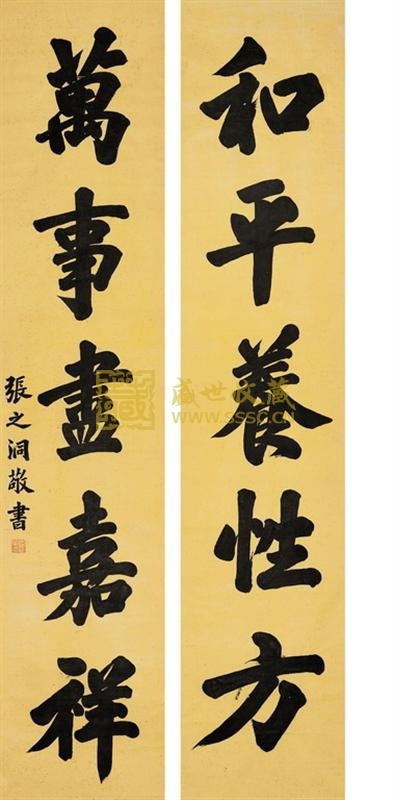 和平養性方
萬事盡嘉祥
張之洞敬書
盛世收藏
www.sssc.cn